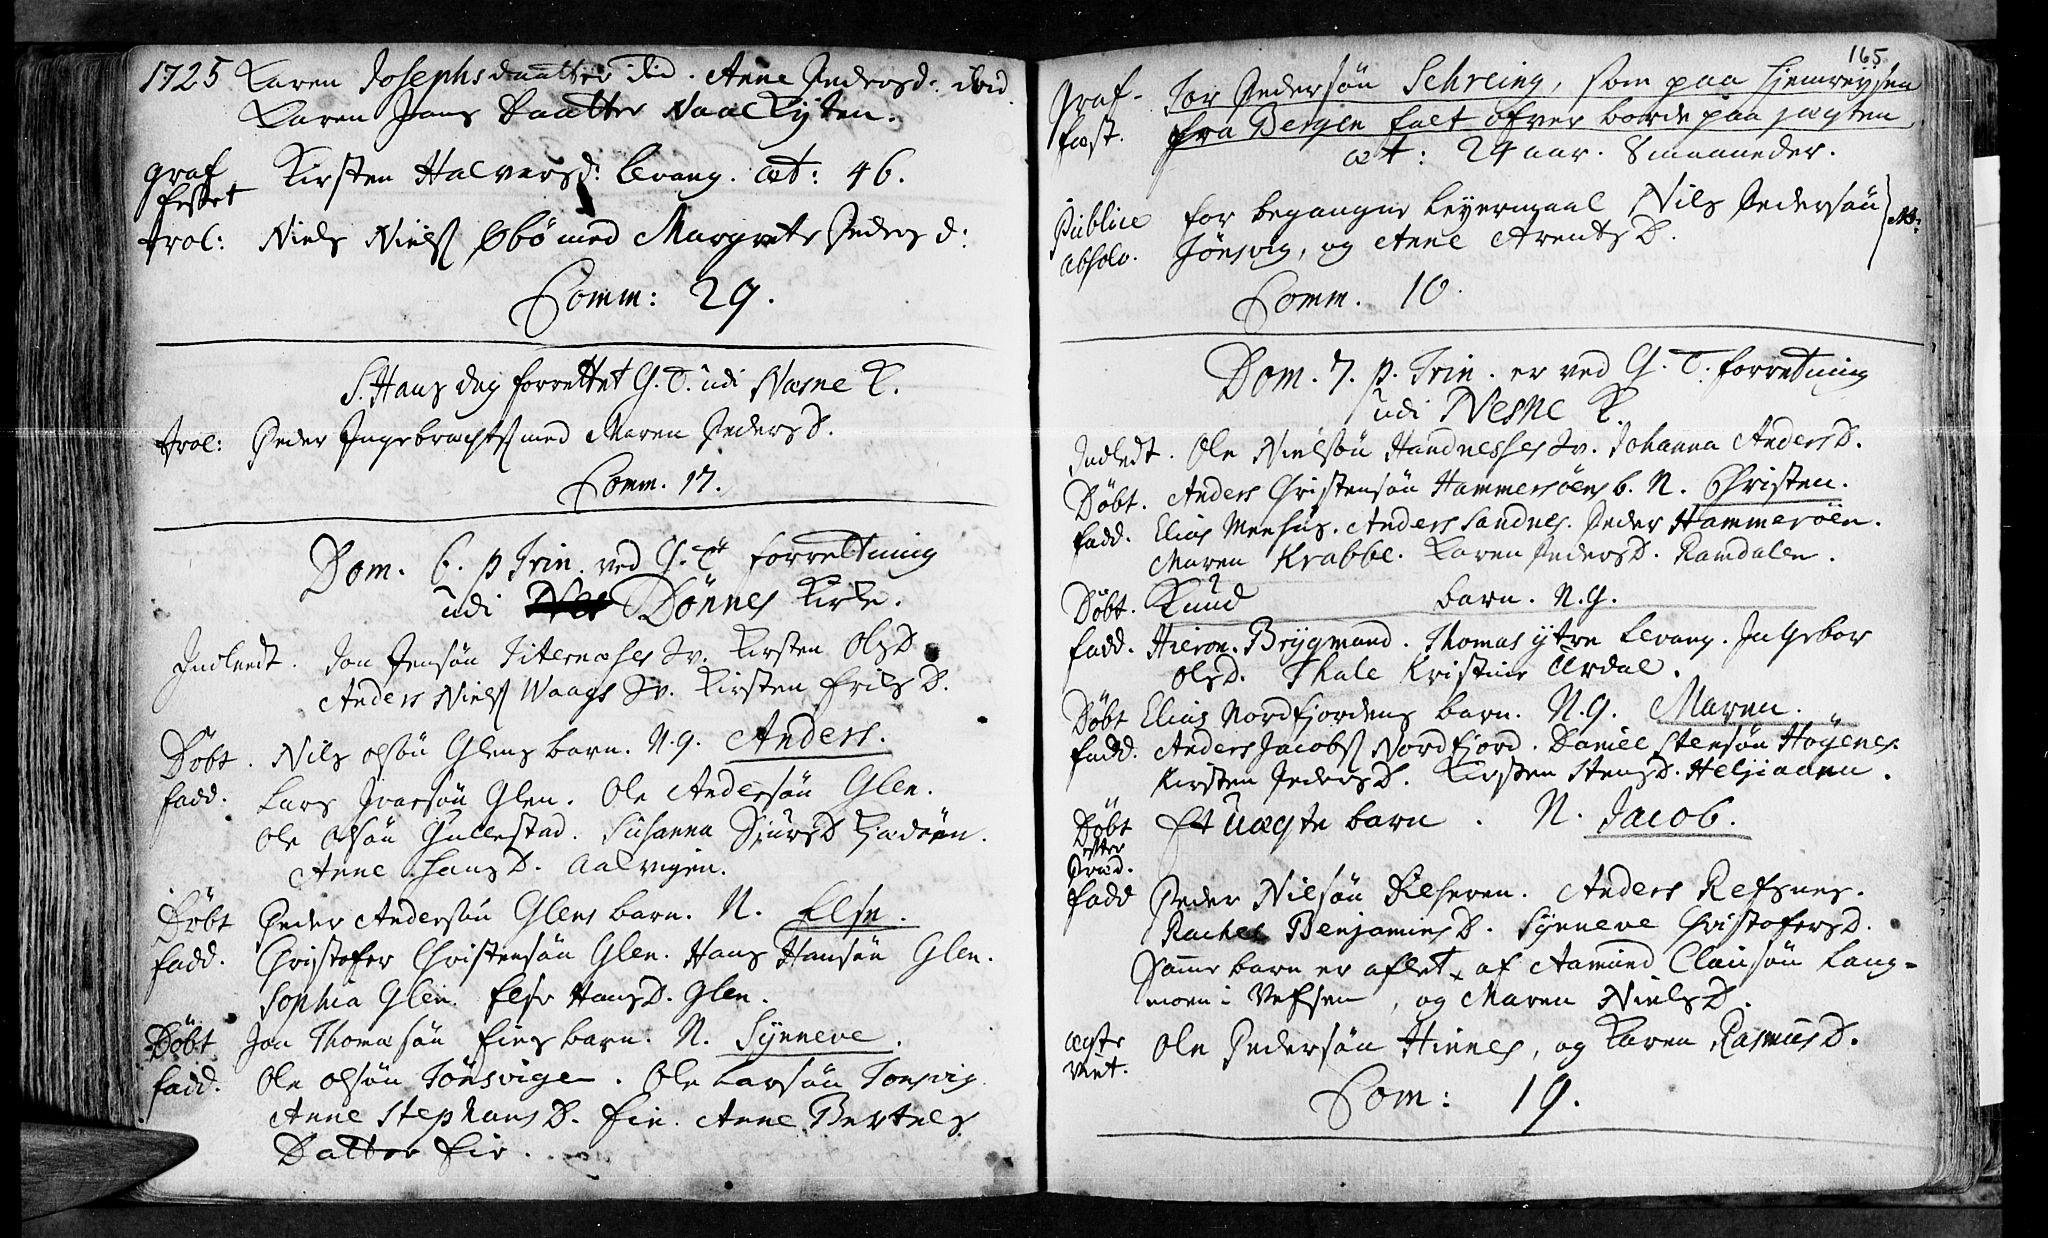 1725 Karen Josephsdaatter ibid. Anne Pedersd: ibid.
Karen Jons Daatter Naalkyten.
graf festet Kirsten Halversd: Levang. æt: 46.
trol: Niels Niels. med Margrete Peders d:
Comm: 29.
S. Hans dag forrettet G. T. udi Næsne K.
trol: Peder Ingebrechts. med Maren PedersD.
Comm. 17.
Dom. 6. p Trin. ved G. T. forrettning
udi Dönnes Kirke.
Indleedt. Jon Jensön Titternæsses Hv. Kirsten OlsD.
Anders Niels. Waags Hv. Kirsten ErilsD.
Döbt. Nils olsön Glens barn. N. g. Anders.
fadd. Lars Ivarsön Glen. Ole Andersön Glen.
Ole olsön Gullestad. Susanna SiursD
Anne HansD. Aalvigen.
Döbt Peder Andersön Glens barn. N. Else.
fadd. Christofer Christensön Glen. Hans Hansön Glen.
Sophia Glen. Else HansD. Glen.
Döbt Jon Thomæsön Eies barn. N. Synneve.
fadd. Ole olsön Tönsvigen. Ole Larsön Tönsvig
Anne StephansD. Eie. Anne Bertels
Datter Eie.
165.
graf-fæst. Tor Pedersön Schreing, som paa hjemreysen
fra Bergen falt ofver borde paa jægten,
æt: 24 aar. 8 maaneder.
Publice absolv. for begangne Leyermaal Nils Pedersön
Tönsvig, og Anne ArentsD. NB:
Comm. 10.
Dom. 7. p. Trin. er ved G. T. forretning
udi Nesne K.
Indledt. Ole Nielsön Handnesses Hv. Johanna AndersD.
Döbt. Anders Christensön Hammersöens b. N. Christen.
fadd. Elias Meehus. Anders Sandnes. Peder Hammeröen.
Maren Krabbe. Karen PedersD. Ramdalen.
Döbt. Knud barn. N. g.
fadd. Hieron. Brygmand. Thomas ytre Levang. Ingebor
OlsD. Thale Kristine Urdal.
Döbt Elias Nordfjordens barn. N. g. Maren.
fadd. Anders Jacobs. Nordfjord. Daniel Stensön Höynes.
Kirsten PedersD. Kirsten StensD. Helgiaaen.
Döbt efter Præd. Et uægte barn. N. Jacob.
fadd Peder Nilsön Anders Refsnes.
Rachel BenjaminsD. Synneve ChristofersD.
Samme barn er aflet af Aamund Clausön Lang-
moen i Vefsen, og Maren NielsD.
ægte viet. Ole Pedersön Hinnes, og Karen RasmusD.
Com: 19.